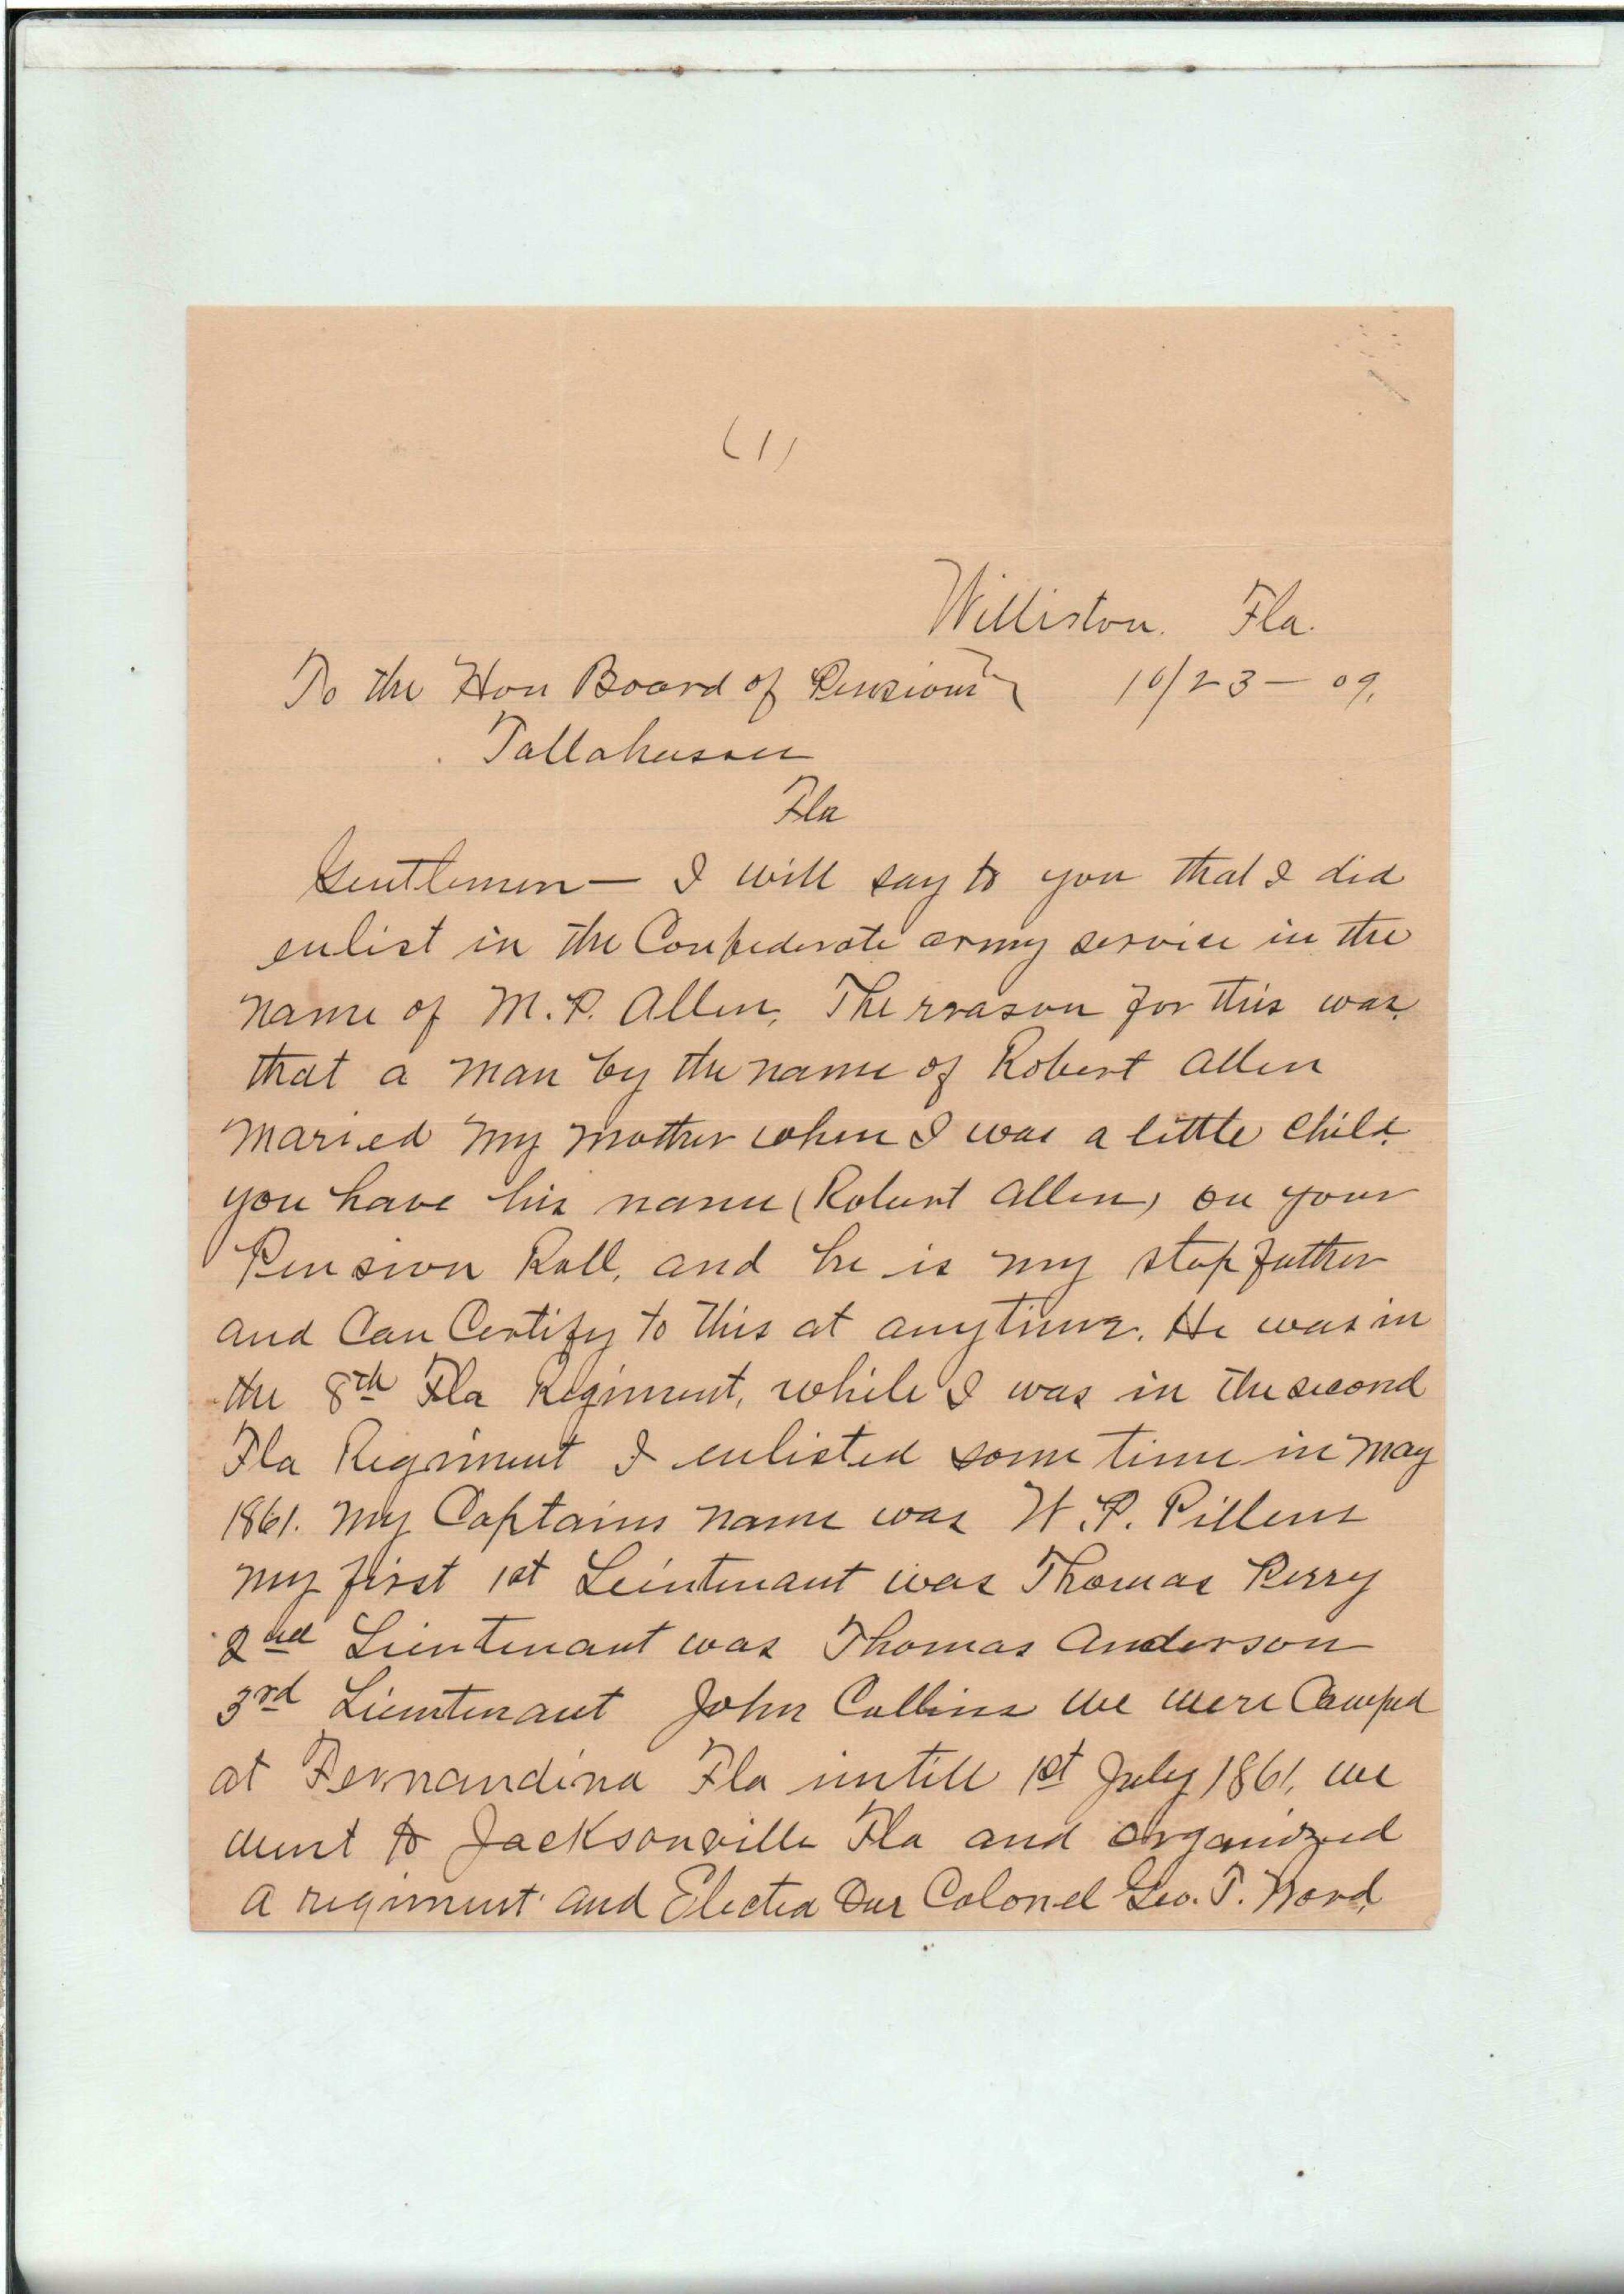 (1)
Williston. Fla.
To the Hon Board of Pensions 10/23 — 09.
Tallahassee
Fla
Gentlemen — I will say to you that I did
enlist in the Confederate army service in the
name of M. P. Allen, The reason for this was
that a man by the name of Robert Allen
maried my mother when I was a little child.
you have his name (Robert Allen) on your
Pension Roll, and he is my step father
and Can Certify to this at anytime. He was in
the 8th Fla Regiment, while I was in the second
Fla Regiment I enlisted some time in May
1861. My Captains name was W. P. Pillens
my first 1st Leiutenant was Thomas Perry
2nd Lieutenant was Thomas Anderson
3rd Lieutenant John Collins we were Camped
at Fernandina Fla untill 1st July 1861, we
went to Jacksonville Fla and organized
a regiment and Elected Our Colonel Geo. T. Ward,